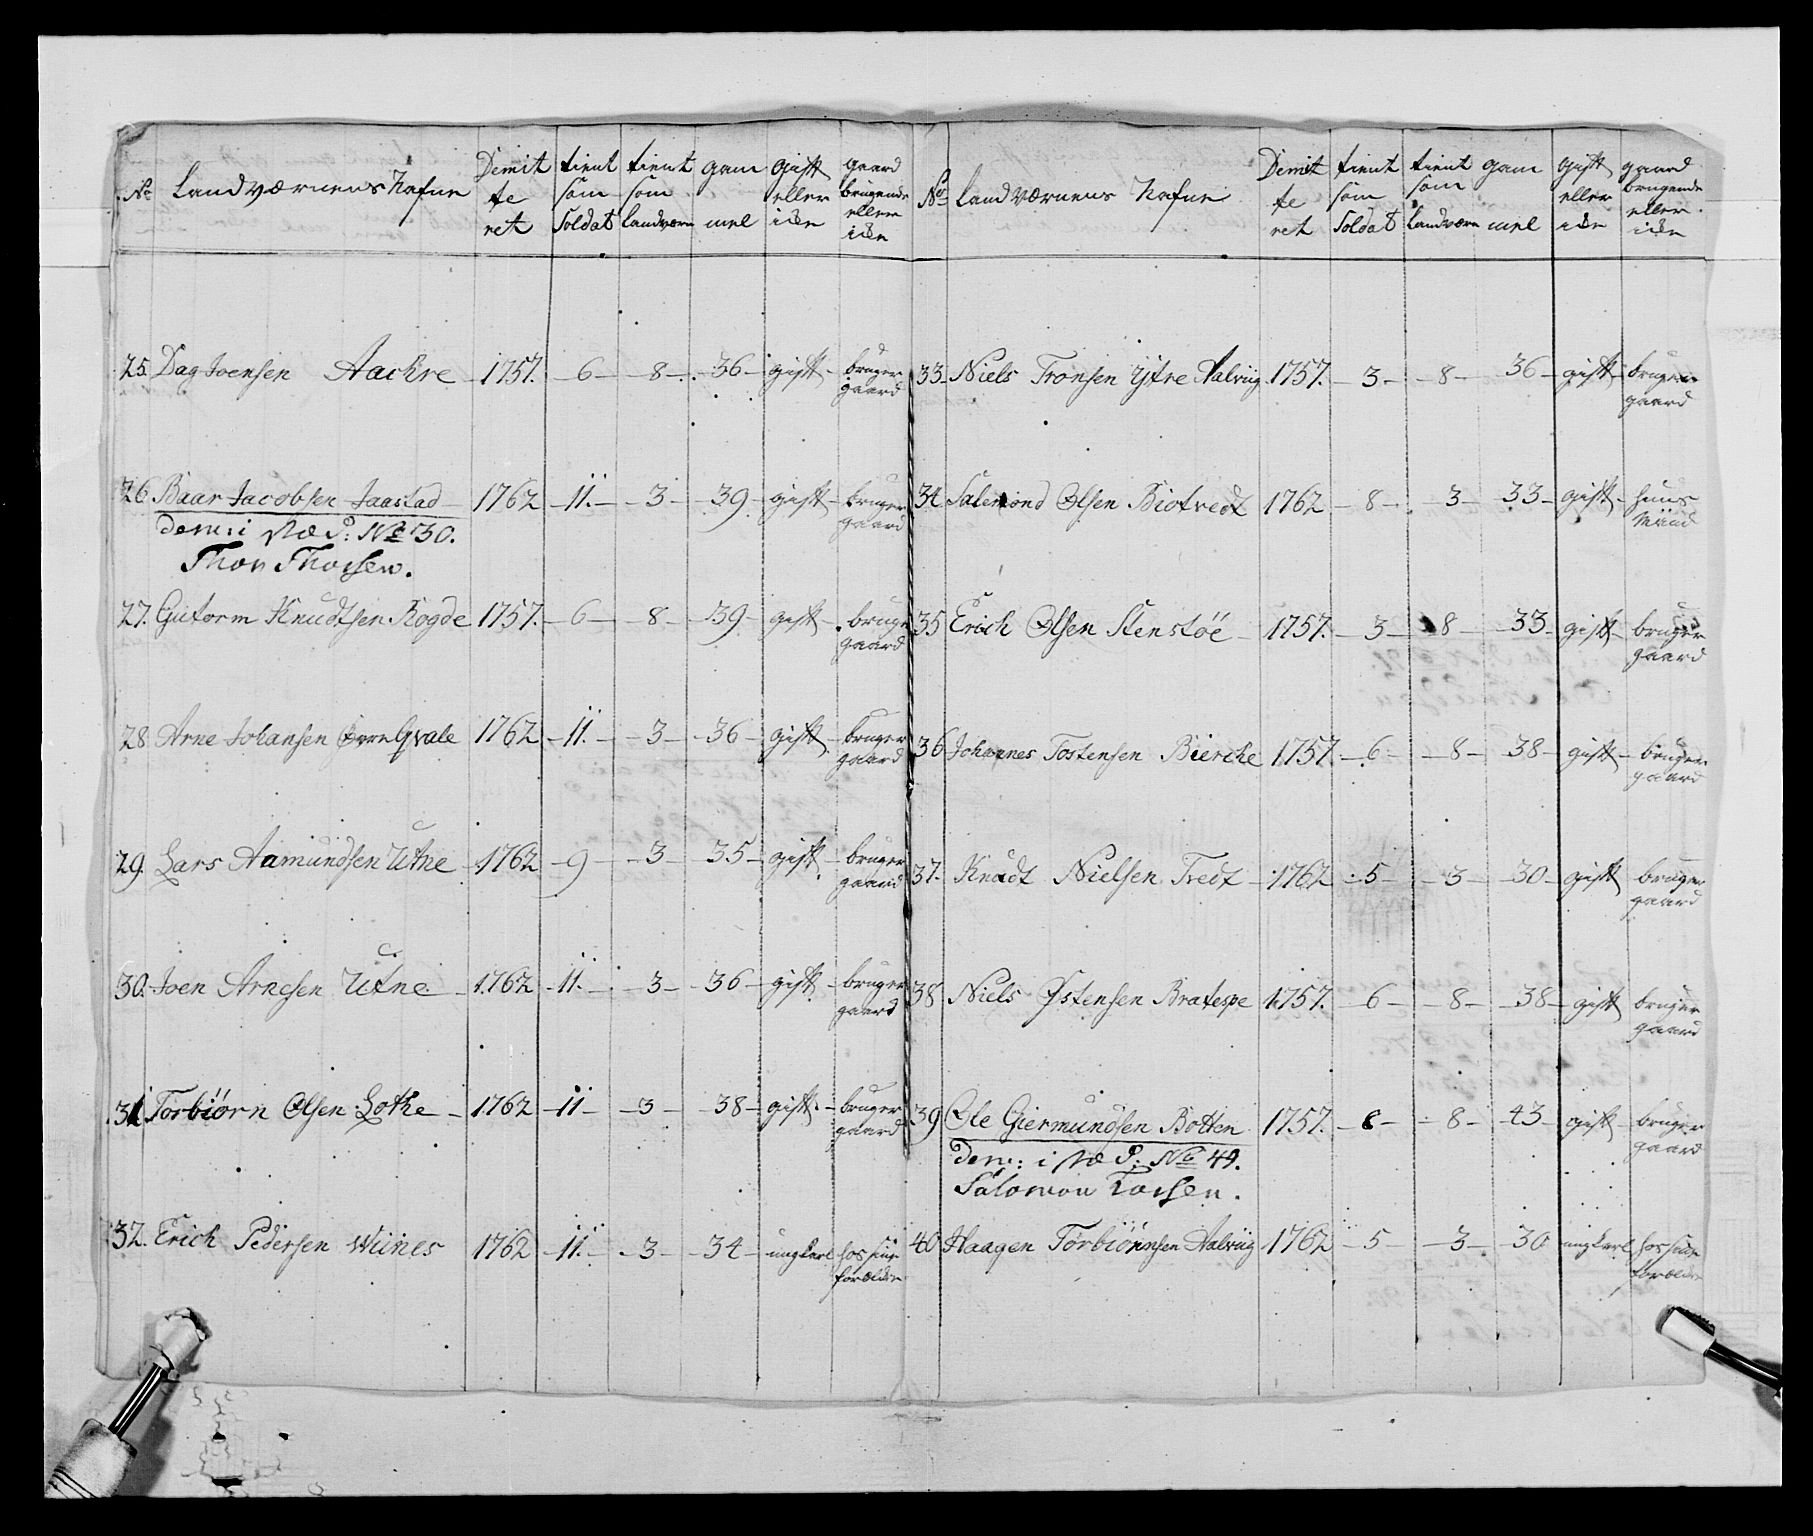 No Landværnens Nafne Demitteret tient som Soldat tient som Landværn gammel gift eller iken gaard brugende eller iken
25. Dag Joensen Aachre 1757. 6 8 36 gift bruger gaard
26. Baar Jacobsen Jaastad 1762 11. 3 39 gift bruger gaard
Dem: i No 30.
Thor Thorsen.
27. Gutorm Knudtsen Rogde 1757. 6 8 39 gift bruger gaard
28 Arne Johansen Qvale 1762 11. 3 36 gift bruger gaard
29. Lars Aamundsen Utne 1762 9 3 35 gift bruger gaard
30. Joen Arnesen Utne 1762 11. 3 36 gift bruger gaard
31 Torbiörn Olsen Lothe 1762 11 3 38 gift bruger gaard
32. Erich Pedersen Wiines 1762 11. 3 34 ungkarl hos sine forældre
No Landværnens Nafne Demitteret tient som Soldat tient som Landværn gammel gift eller iken gaard brugende eller iken
33. Niels Tronsen Yttre Aalviig 1757. 3 8 36 gift bruger gaard
34 Salemond Olsen Biotvedt 1762 8 3 33 gift huus Mand
35 Erich Olsen Stenstöe 1757. 3 8 33 gift bruger gaard
36 Johannes Tostensen Bierche 1757. 6 8 38 gift bruger gaard
37. Knudt Nielsen Tvedt 1762 5 3 30 gift bruger gaard
38 Niels Östensen Bratespe 1757. 6 8 38 gift bruger gaard
39 Ole Giermundsen Botten 1757. 8 43 gift bruger gaard
Dem: i No 49.
Salomon Torsen.
40 Haagen Torbiörnsen Aalviig 1762 5 3 30 ungkarl hos sine forældre